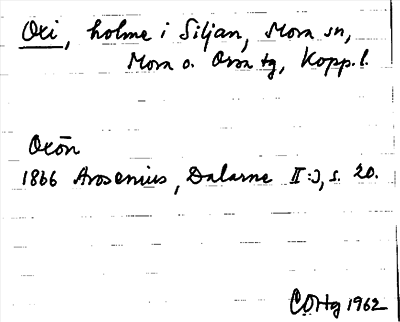 Oxi, holme i Siljan, Mora sn,
Mora o. Orsa tg, Kopp. l.
Oxön
1866 Arosenius, Dalarne II:3, s. 20.
COHg 1962